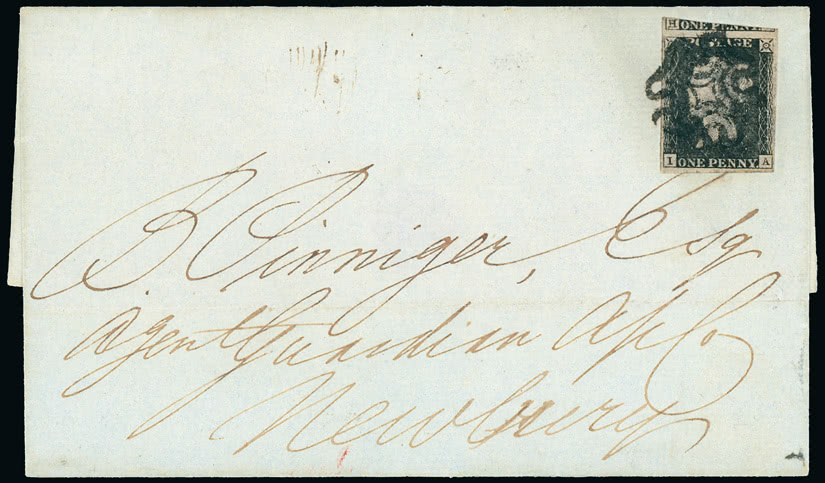 H ONE PENNY
POSTAGE
I ONE PENNY. A
B. Pinniger, Esq
Agent Guardian
Newbury